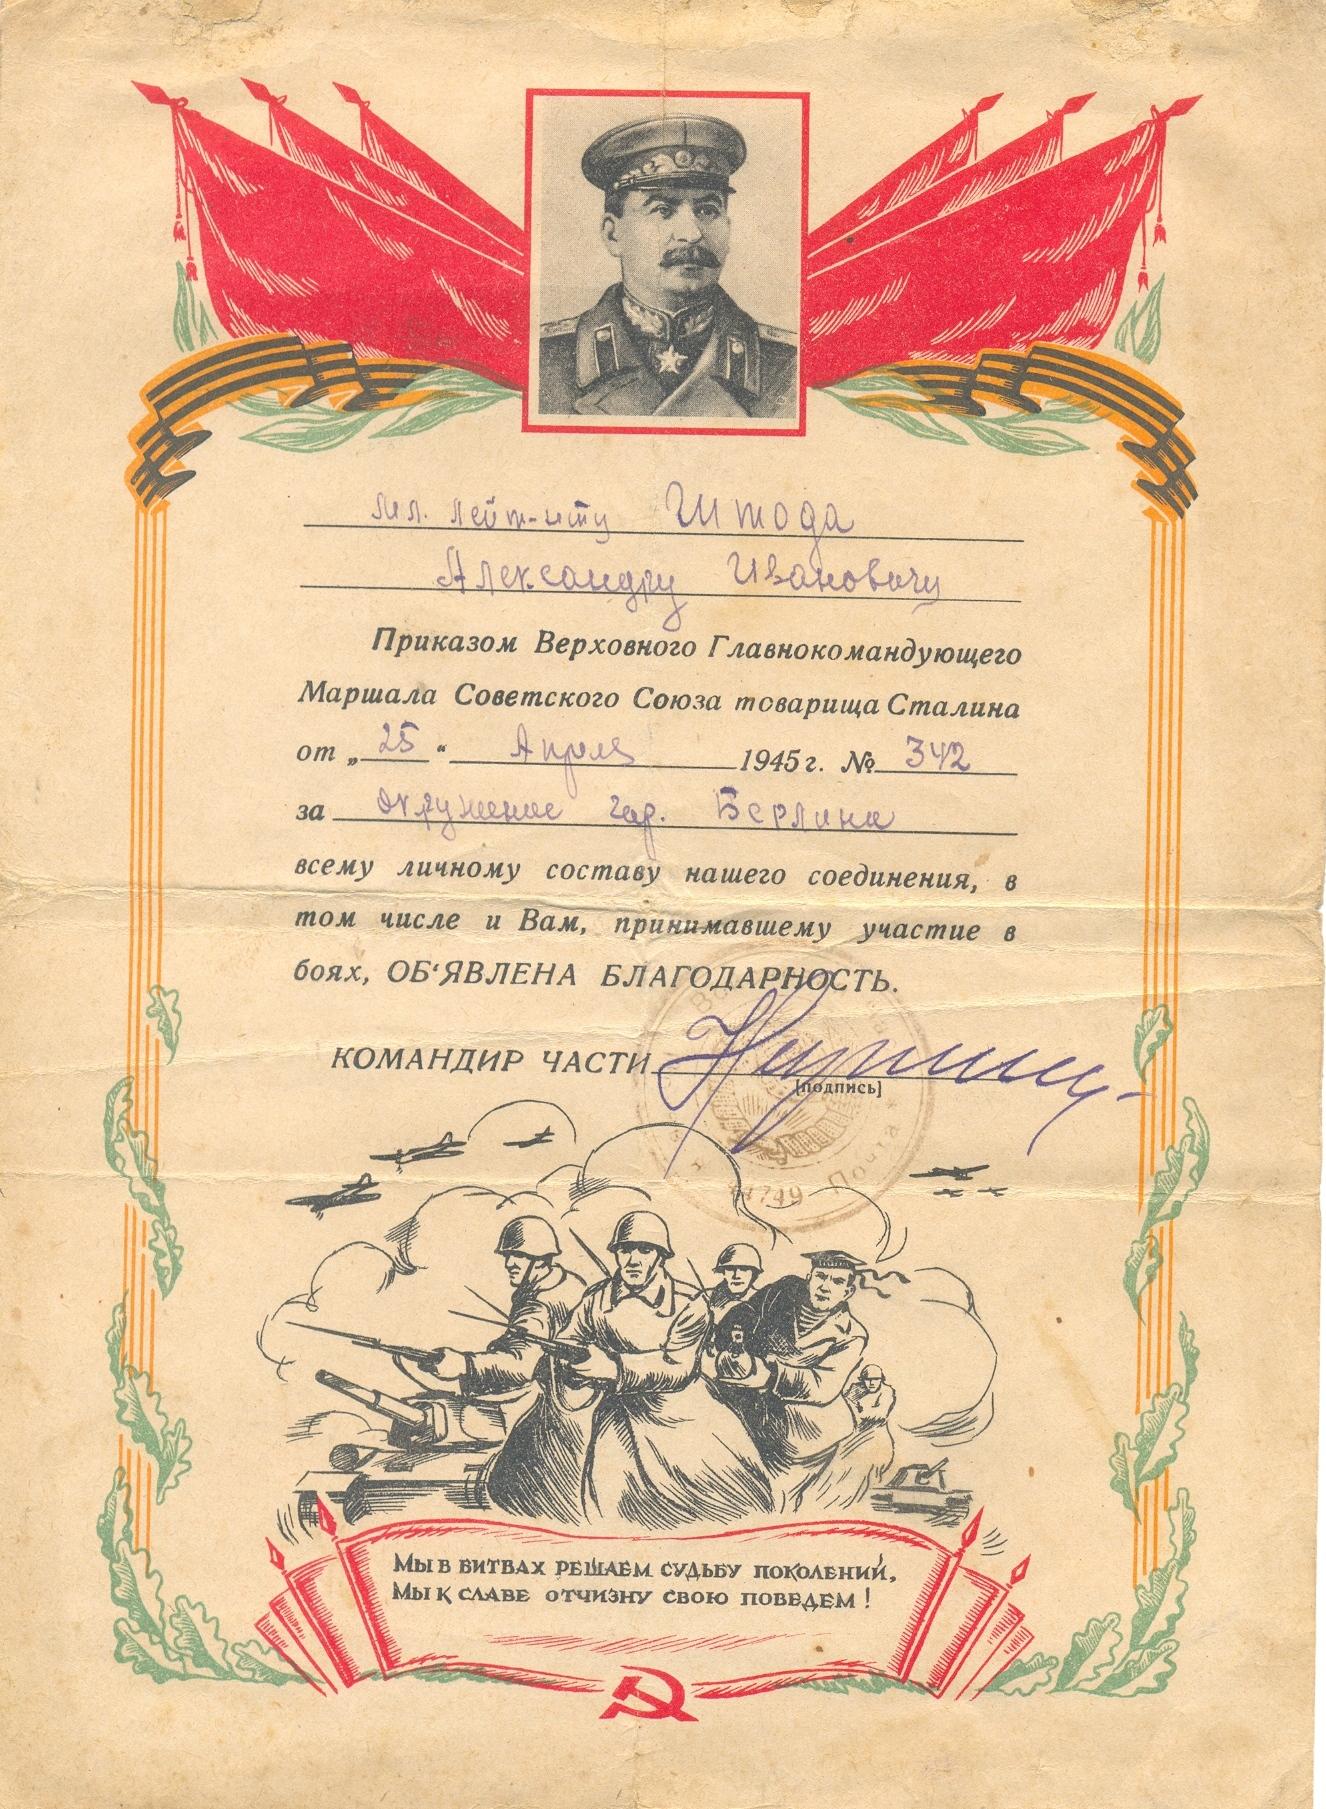 мл. лейт-нту Штода
Александру Ивановичу
Приказом Верховного Главнокомандующего
Маршала Советского Союза товарища Сталина
от „25“ Апреля 1945 г. № 342
за окружение гор. Берлина
всему личному составу нашего соединения, в
том числе и Вам, принимавшему участие в
боях, ОБ'ЯВЛЕНА БЛАГОДАРНОСТЬ.
КОМАНДИР ЧАСТИ
[подпись]
Почта
МЫ В БИТВАХ РЕШАЕМ СУДЬБУ ПОКОЛЕНИЙ,
МЫ К СЛАВЕ ОТЧИЗНУ СВОЮ ПОВЕДЕМ!